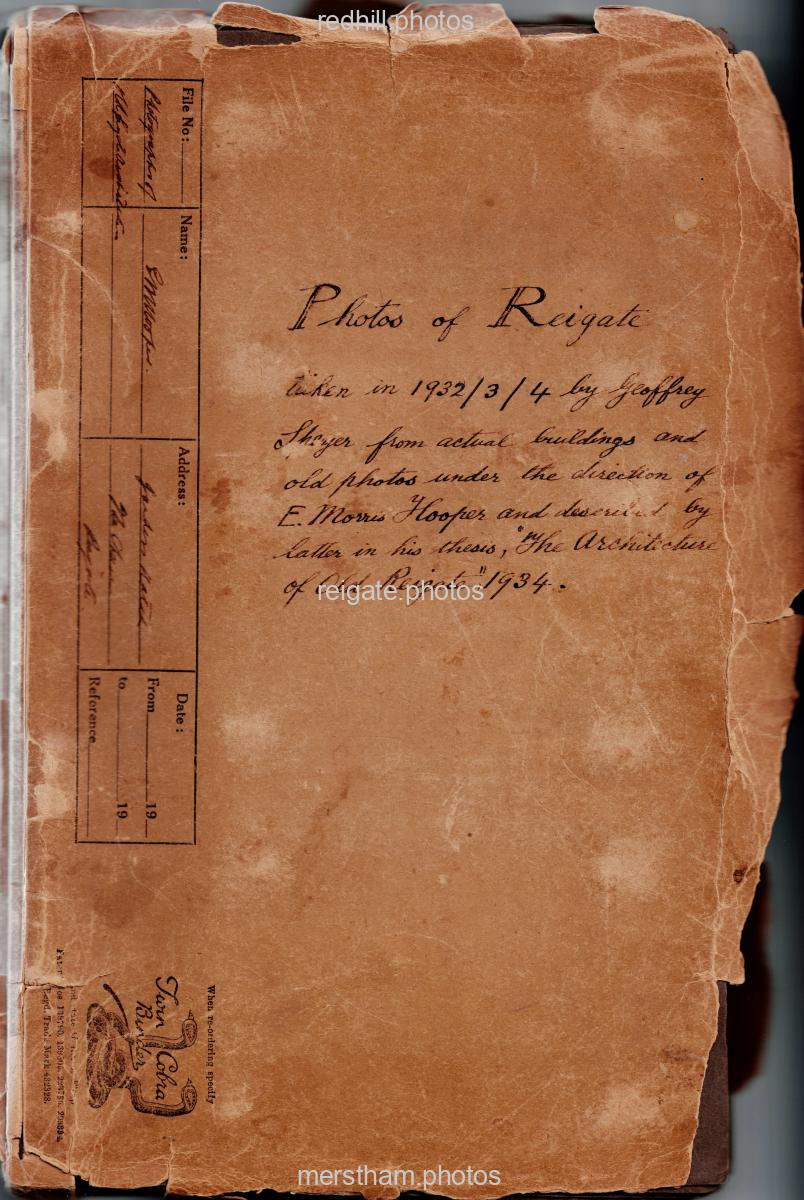 redhill.photos
Photos of Reigate
taken in 1932/3/4 by Geoffrey
from actual buildings and
old photos under the direction of
E. Morris Hooper and described by
latter in his thesis, "The Architecture
of Old Reigate" 1934.
reigate.photos
File No:
Photographs of
Name:
Address:
Reigate
Date:
From 19
to 19
Reference
When re-ordering specify
Twin Cobra
Binder
Regd. Trade Mark
merstham.photos